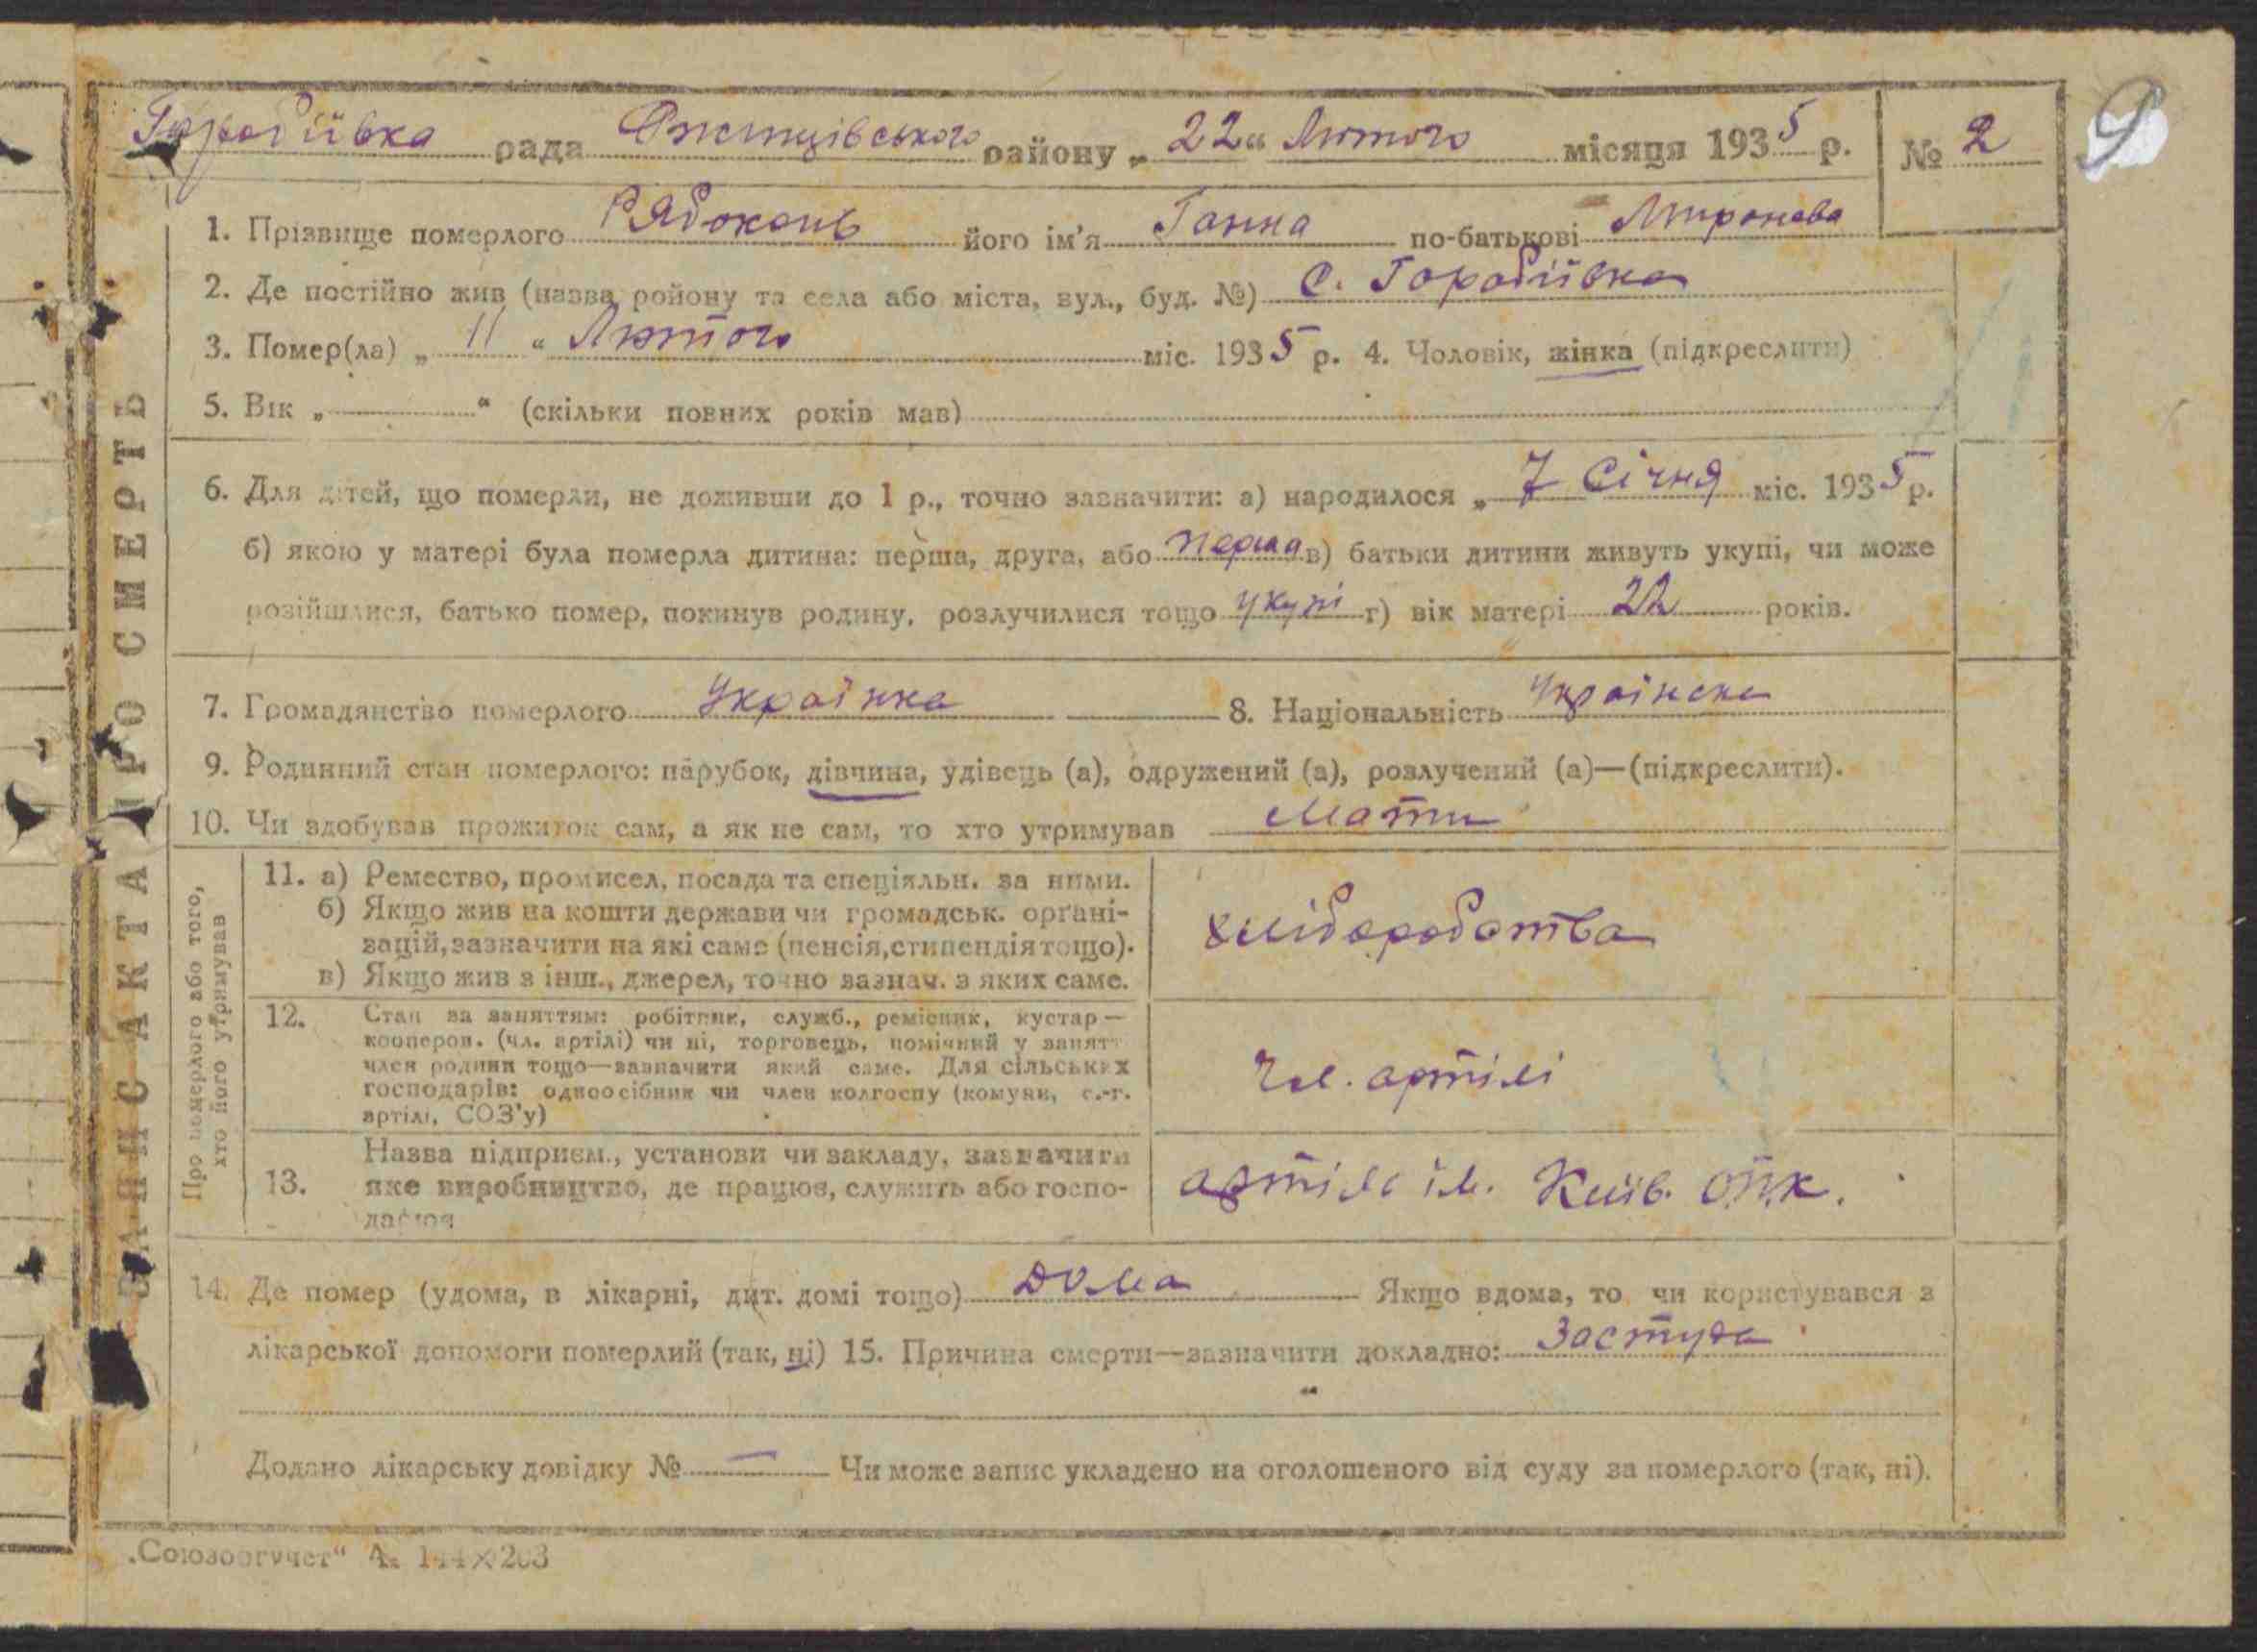 9
Горобіївка рада районy „ 22 “ Лютого місяця 1935 р. № 2
1. Прізвище померлого Рябоконь його ім’я Ганна по-батькові Миронова
2. Де постійно жив (назва ройону та села або міста, вул., буд. №) С. Горобіївка
3. Помер(ла) „ 11 “ Лютого міс. 1935 р. 4. Чоловік, жінка (підкреслити)
5. Вік „ “ (скільки повних років мав)
6. Для дітей, що померли, не доживши до 1 р., точно зазначити: а) народилося „ 7 Січня міс. 1935 р.
б) якою у матері була померла дитина: перша, друга, або перша в) батьки дитини живуть укупі, чи може
розійшлися, батько помер, покинув родину, розлучилися тощо укупі г) вік матері 22 років.
7. Громадянство померлого Українка 8. Національність Українка
9. Родинний стан померлого: парубок, дівчина, удівець (а), одружений (а), розлучений (а)—(підкреслити).
10. Чи здобував прожиток сам, а як не сам, то хто утримував Мати
ЗАПИС АКТА ПРО СМЕРТЬ
Про померлого або того,
хто його утримував
11. а) Ремество, промисел, посада та спеціяльн. за ними.
б) Якщо жив на кошти держави чи громадськ. органі-
зацій, зазначити на які саме (пенсія, стипендія тощо).
в) Якщо жив з інш., джерел, точно зазнач. з яких саме.
хліборобства
12. Стан за заняттям: робітник, служб., ремісник, кустар—
кооперов. (чл. артілі) чи ні, торговець, помічний у занятт
член родини тощо—зазначити який саме. Для сільських
господарів: одноосібник чи член колгоспу (комуни, с.-г.
артілі, СОЗ’у)
Чл. артілі
13. Назва підприєм., установи чи закладу, зазначити
яке виробництво, де працює, служить або госпо-
дарює
артіль ім. Київ. ОПК.
14. Де помер (удома, в лікарні, дит. домі тощо) дома Якщо вдома, то чи користувався з
лікарської допомоги померлий (так, ні) 15. Причина смерти—зазначити докладно: Застуда
Додано лікарську довідку № — Чи може запис укладено на оголошеного від суду за померлого (так, ні).
„Союзоргучет“ А. 144×203